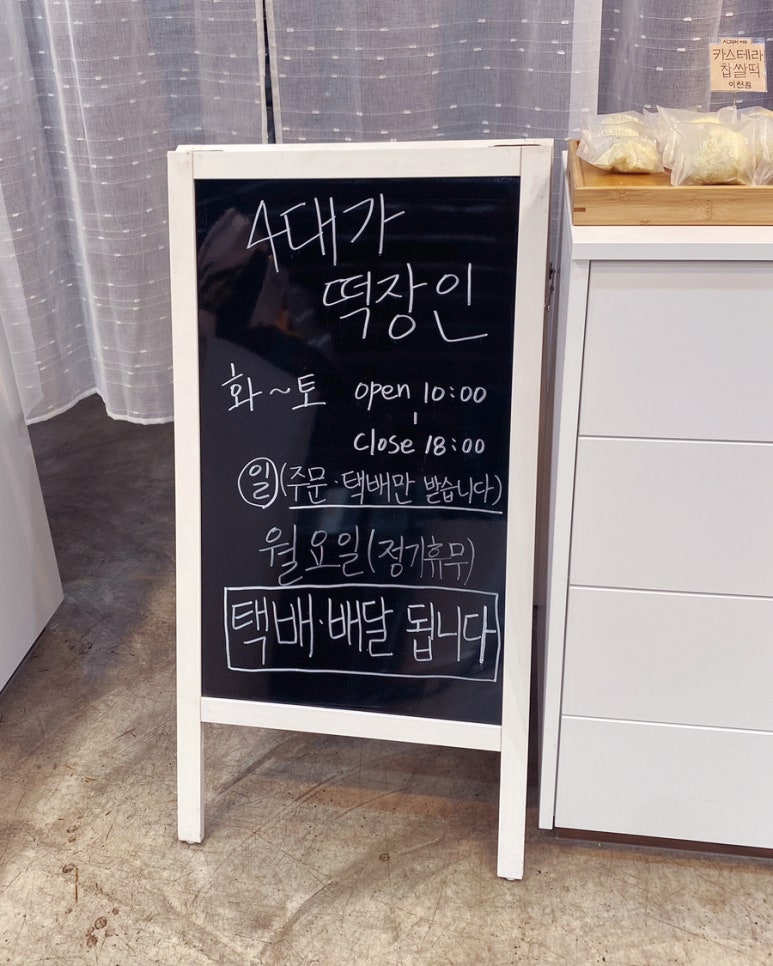 4대가
떡장인
화~토 open 10:00
close 18:00
일(주문·택배만 받습니다)
월요일(정기휴무)
택배·배달 됩니다
카스테라
찹쌀떡
이천원